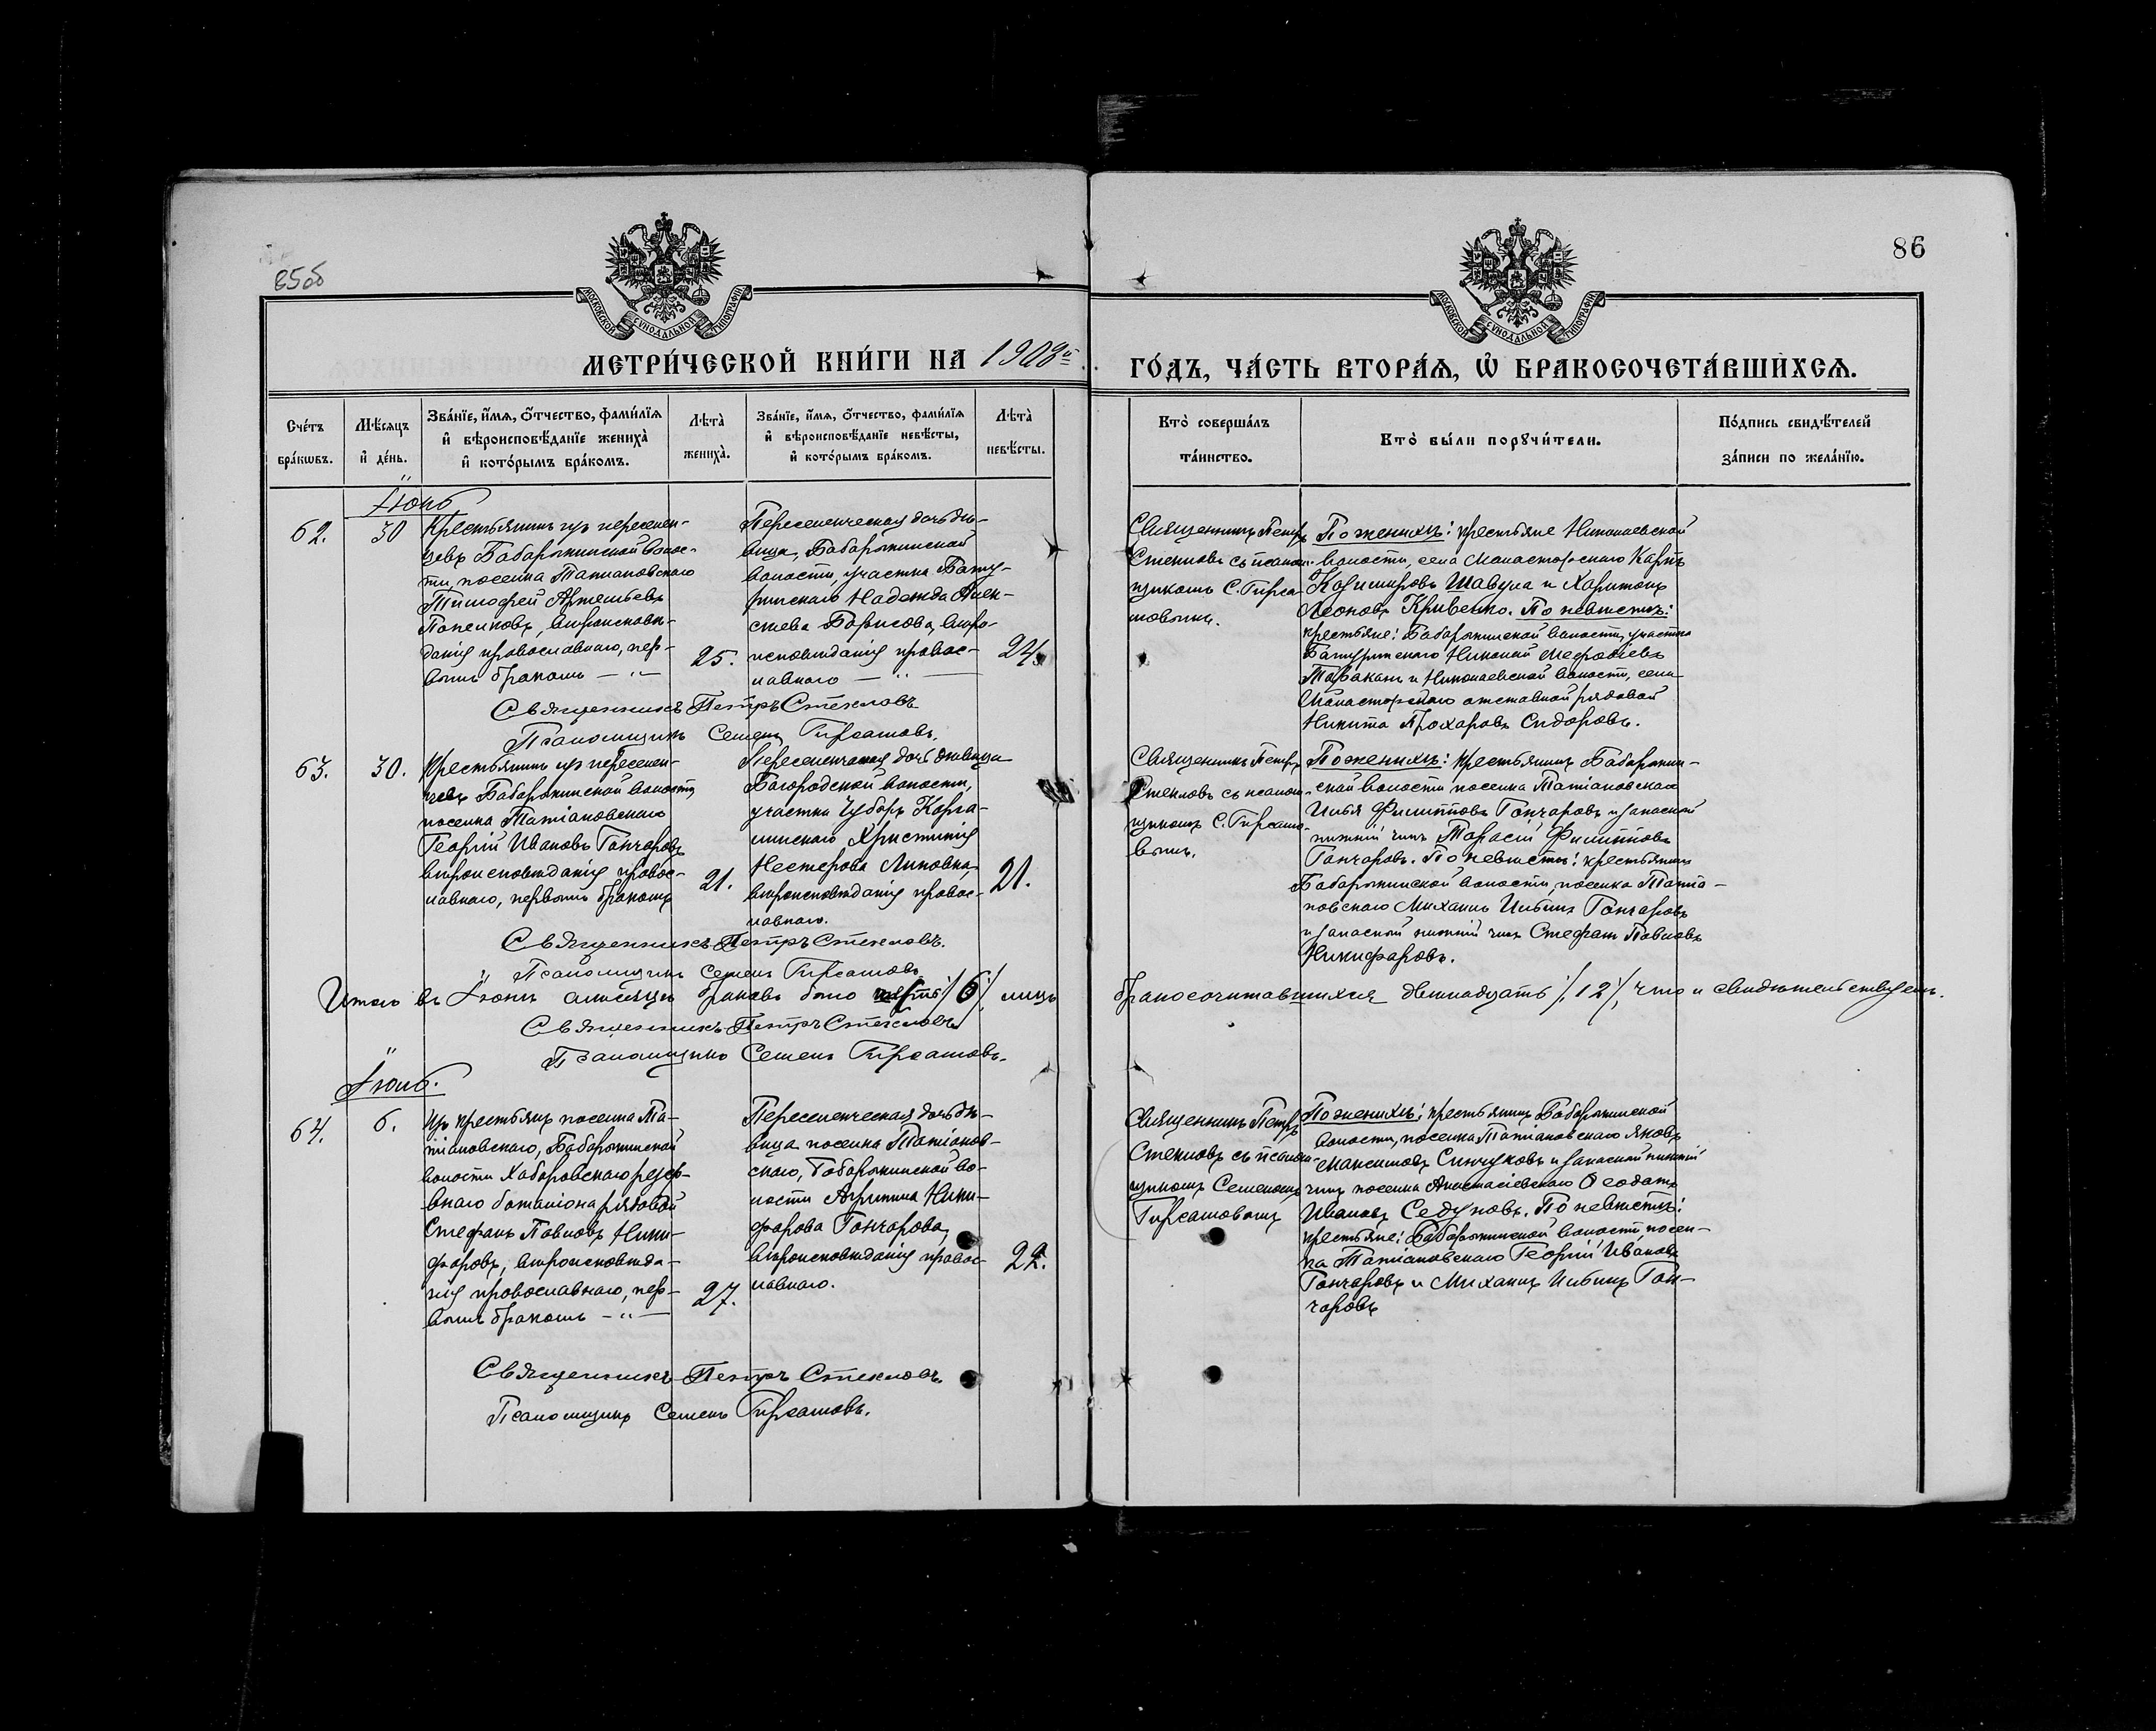 85об
86
МОСКОВСКОЙ СѴНОДАЛЬНОЙ ТИПОГРАФІИ
МОСКОВСКОЙ СѴНОДАЛЬНОЙ ТИПОГРАФІИ
МЕТРИ́ЧЕСКОЙ КНИ́ГИ НА 1908й
ГО́ДЪ, ЧА́СТЬ ВТОРА́Ѧ, Ѡ҆ БРАКОСОЧЕТА́ВШИХСѦ.
Сче́тъ бра́кѡвъ.
Мѣ́сяцъ и҆ де́нь.
Зва́нїе, и҆́мѧ, ѻ҆́тчество, фами́лїѧ
и҆ вѣроисповѣ́данїе жениха̀
и҆ кото́рымъ бра́комъ.
Лѣ́та̀ жениха̀.
Зва́нїе, и҆́мѧ, ѻ҆́тчество, фами́лїѧ
и҆ вѣроисповѣ́данїе невѣ́сты,
и҆ кото́рымъ бра́комъ.
Лѣ́та̀ невѣ́сты.
Кто̀ соверша́лъ
та́инство.
Кто̀ бы́ли порꙋчи́тели.
По́дпись свидѣ́телей
за́писи по жела́нїю.
Іюнь
62.
30
Крестьянинъ изъ переселен-
цевъ Бабаролинской волос-
ти, поселка Татіановскаго
Тимофей Артемьевъ
Попелковъ, вѣроисповѣ-
данія православнаго, пер-
вымъ бракомъ — „ —
25.
Переселенческая дочь дѣ-
вица, Бабаролинской
волости, участка Бату-
ринскаго Надежда Алек-
сѣева Борисова, вѣро-
исповѣданія правос-
лавнаго — „ —
24.
Священникъ Петръ
Стекловъ съ псалом-
щикомъ С. Гирса-
мовымъ.
По женихѣ: крестьяне Николаевской
волости, села Монастырскаго Карпъ
Казимировъ Шавула и Харитонъ
Леоновъ Кривенко. По невѣстѣ:
крестьяне: Бабаролинской волости, участка
Батуринскаго Николай Мефодіевъ
Таракань и Николаевской волости, села
Монастырскаго отставной рядовой
Никита Прохоровъ Сидоровъ.
Священникъ Петръ Стекловъ
Псаломщикъ Семенъ Гирсамовъ.
63.
30.
Крестьянинъ изъ переселен-
цевъ Бабаролинской волости,
поселка Татіановскаго
Георгій Ивановъ Гончаровъ
вѣроисповѣданія правос-
лавнаго, первымъ бракомъ
21.
Переселенческая дочь дѣвица
Багородской волости,
участка Чубаръ
Христинія
Нестерова Липовка,
вѣроисповѣданія правос-
лавнаго.
21.
Священникъ Петръ
Стекловъ съ псалом-
щикомъ С. Гирсамо-
вымъ.
По женихѣ: крестьянинъ Бабаролин-
ской волости поселка Татіановскаго
Илья Филипповъ Гончаровъ и запасной
нижній чинъ Тарасій Филипповъ
Гончаровъ. По невѣстѣ: крестьянинъ
Бабаролинской волости, поселка Татіа-
новскаго Михаилъ Ильинъ Гончаровъ
и запасной нижній чинъ Стефанъ Павловъ
Никифоровъ.
Священникъ Петръ Стекловъ.
Псаломщикъ Семенъ Гирсамовъ.
Итого въ Іюнѣ мѣсяцѣ браковъ было шесть /6/, лицъ бракосочитавшихся двенадцать /12/, что и свидѣтельствуемъ.
Священникъ Петръ Стекловъ
Псаломщикъ Семенъ Гирсамовъ.
Іюль.
64.
6.
Изъ крестьянъ поселка Та-
тіановскаго, Бабаролинской
волости Хабаровскаго резер-
внаго баталіона рядовой
Стефанъ Павловъ Ники-
форовъ, вѣроисповѣда-
нія православнаго, пер-
вымъ бракомъ — „ —
27.
Переселенческая дочь дѣ-
вица поселка Татіанов-
скаго, Бабаролинской во-
лости Агрипина Ники-
форова Гончарова,
вѣроисповѣданія правос-
лавнаго.
22.
Священникъ Петръ
Стекловъ съ псалом-
щикомъ Семеномъ
Гирсамовымъ
По женихѣ: крестьянинъ Бабаролинской
волости, поселка Татіановскаго Яковъ
Максимовъ Синчуковъ и запасной нижній
чинъ поселка Анастасіевскаго Ѳеодотъ
Ивановъ Седуновъ. По невѣстѣ:
крестьяне: Бабаролинской волости, посел-
ка Татіановскаго Георгій Ивановъ
Гончаровъ и Михаилъ Ильинъ Гон-
чаровъ
Священникъ Петръ Стекловъ.
Псаломщикъ Семенъ Гирсамовъ.